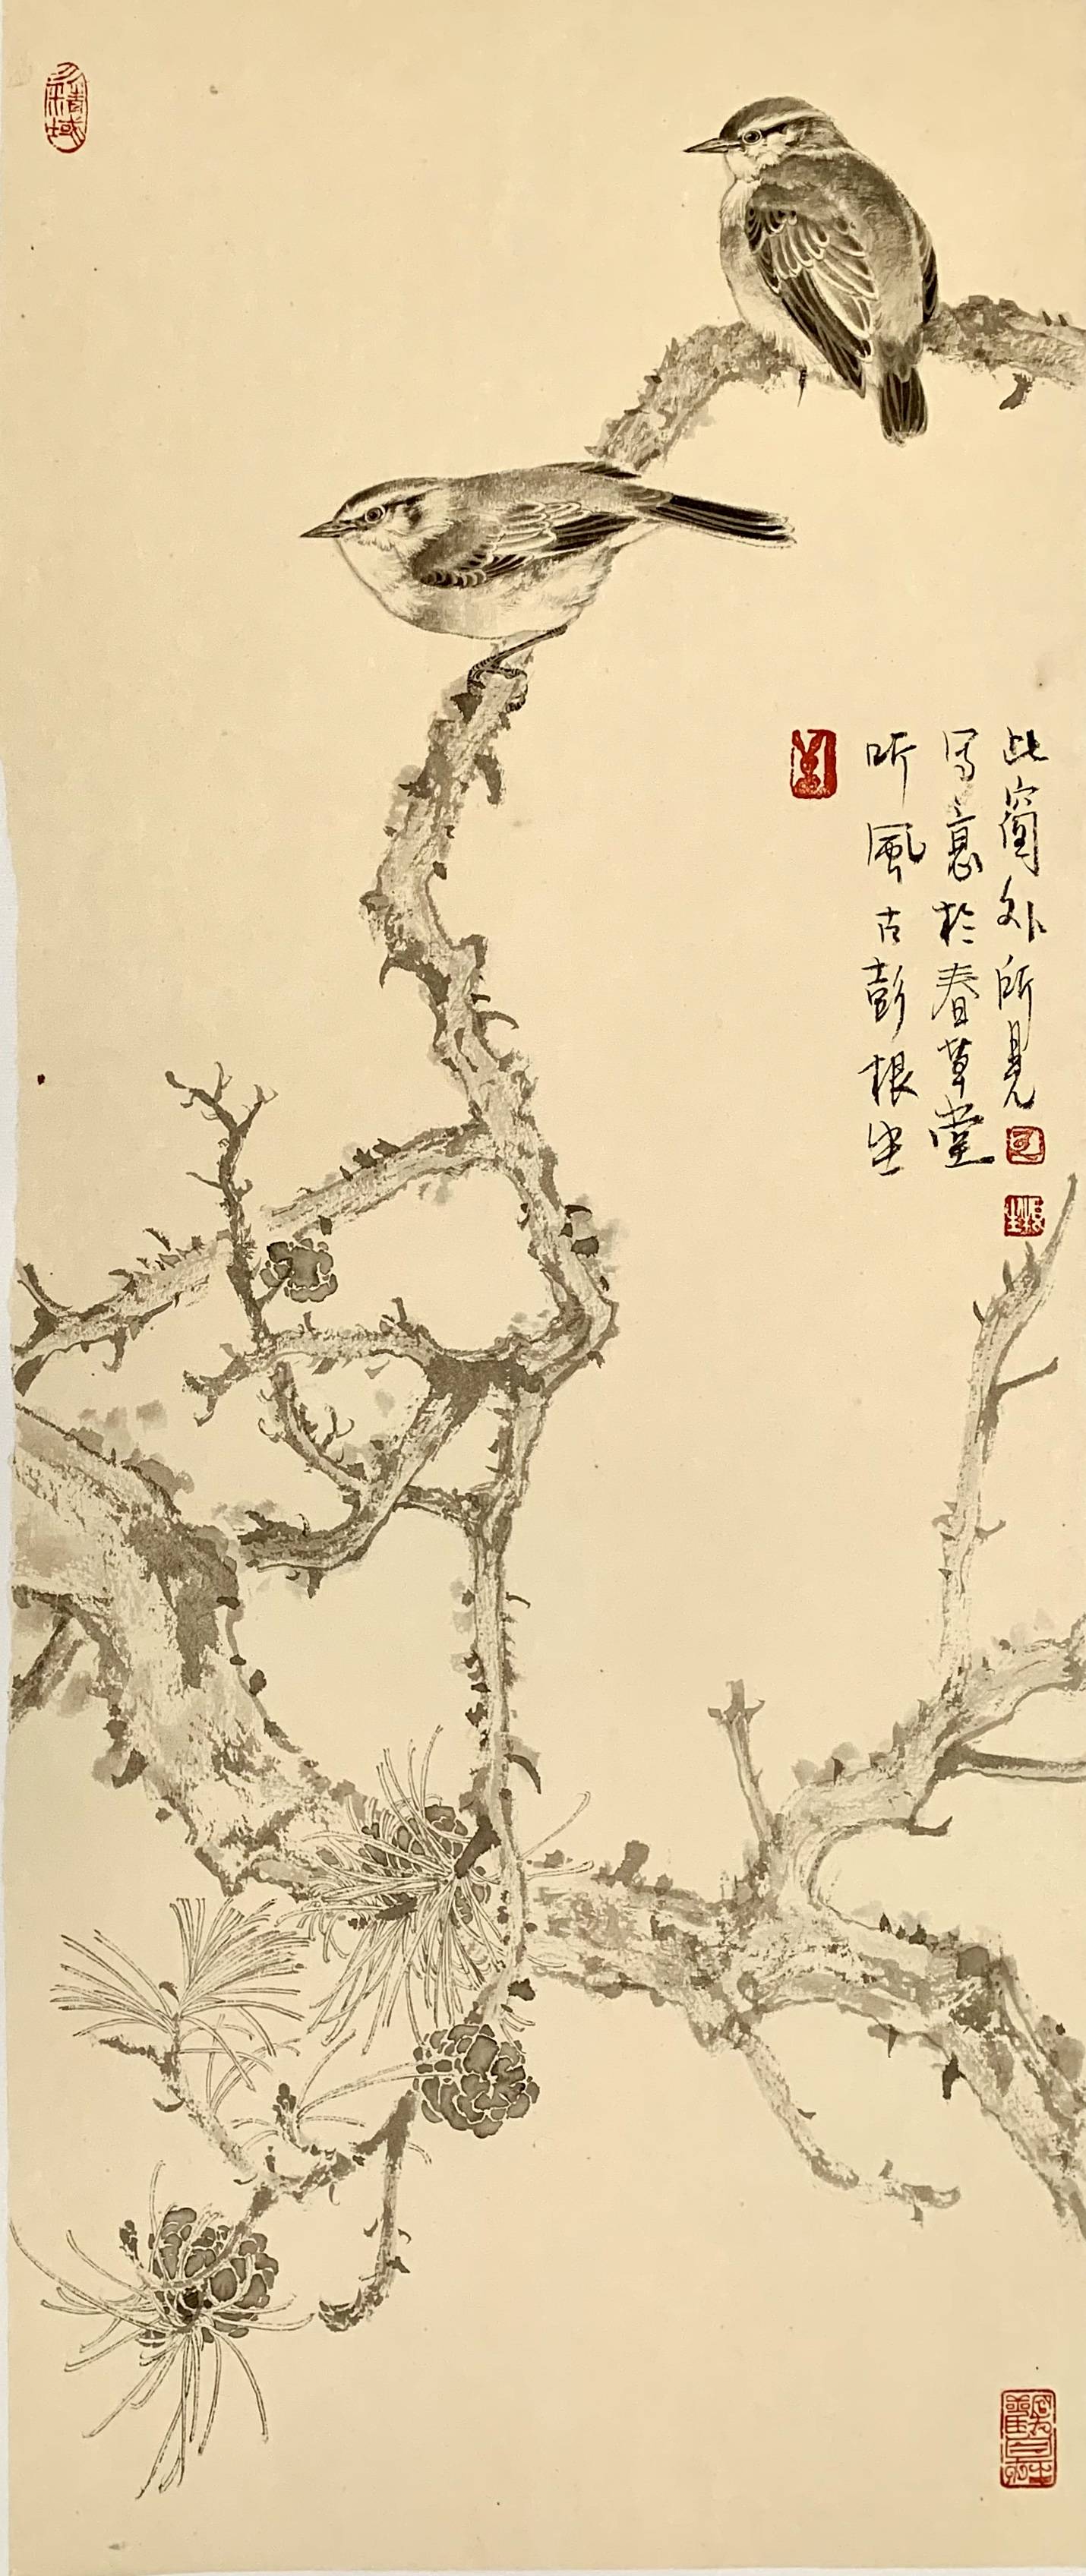 此窗外所見
写意於春草堂
听風古彭根生